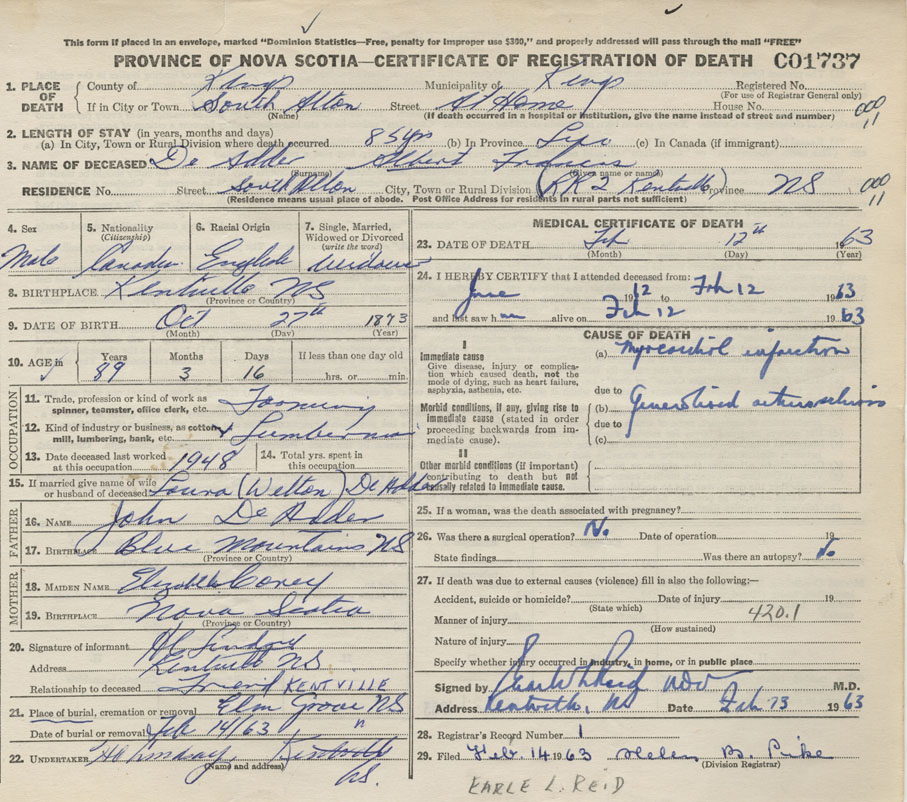 This form if placed in an envelope, marked "Dominion Statistics—Free, penalty for improper use $300," and properly addressed will pass through the mail "FREE"
PROVINCE OF NOVA SCOTIA—CERTIFICATE OF REGISTRATION OF DEATH C01737
1. PLACE OF DEATH County of Kings Municipality of Kings Registered No. (For use of Registrar General only)
If in City or Town South Alton (Name) Street At Home House No.
(If death occurred in a hospital or institution, give the name instead of street and number)
000 11
2. LENGTH OF STAY (in years, months and days)
(a) In City, Town or Rural Division where death occurred 85 yrs (b) In Province (c) In Canada (if immigrant)
3. NAME OF DECEASED De Adder (Surname) Albert Francis (Given name or names)
RESIDENCE No. Street South Alton City, Town or Rural Division (RR 2 Kentville) Province NS
(Residence means usual place of abode. Post Office Address for residents in rural parts not sufficient)
000 11
4. Sex Male
5. Nationality (Citizenship) Canadian
6. Racial Origin English
7. Single, Married, Widowed or Divorced (write the word) Widower
8. BIRTHPLACE Kentville NS (Province or Country)
9. DATE OF BIRTH Oct (Month) 27th (Day) 1873 (Year)
10. AGE in Years 89 Months 3 Days 16 If less than one day old hrs. or min.
OCCUPATION
11. Trade, profession or kind of work as spinner, teamster, office clerk, etc.
12. Kind of industry or business, as cotton mill, lumbering, bank, etc. Lumberman
13. Date deceased last worked at this occupation 1948
14. Total yrs. spent in this occupation
15. If married give name of wife or husband of deceased Laura (Welton) De Adder
FATHER
16. NAME John De Adder
17. BIRTHPLACE Blue Mountains NS (Province or Country)
MOTHER
18. MAIDEN NAME Elizabeth Coney
19. BIRTHPLACE Nova Scotia (Province or Country)
20. Signature of informant HC Lindsay
Address Kentville NS
Relationship to deceased Friend KENTVILLE
21. Place of burial, cremation or removal Elm Grove NS
Date of burial or removal Feb 14/63 "
22. UNDERTAKER HC Lindsay Kentville NS. (Name and address)
MEDICAL CERTIFICATE OF DEATH
23. DATE OF DEATH Feb (Month) 12th (Day) 1963 (Year)
24. I HEREBY CERTIFY that I attended deceased from:
June 1912 to Feb 12 1963
and last saw him alive on Feb 12 1963
CAUSE OF DEATH
I
Immediate cause
Give disease, injury or complication which caused death, not the mode of dying, such as heart failure, asphyxia, asthenia, etc.
(a) Myocardial infarction
due to
Morbid conditions, if any, giving rise to immediate cause (stated in order proceeding backwards from immediate cause).
(b) Generalized arteriosclerosis
due to
(c)
II
Other morbid conditions (if important) contributing to death but not causally related to immediate cause.
25. If a woman, was the death associated with pregnancy?
26. Was there a surgical operation? No Date of operation 19
State findings Was there an autopsy? No
27. If death was due to external causes (violence) fill in also the following:—
Accident, suicide or homicide? (State which) Date of injury 19
Manner of injury (How sustained) 420.1
Nature of injury
Specify whether injury occurred in industry, in home, or in public place
Signed by M.D.
Address Kentville, NS Date Feb 13 1963
28. Registrar's Record Number 1
29. Filed Feb. 14 1963 Helen B. Pike (Division Registrar)
EARLE L. REID